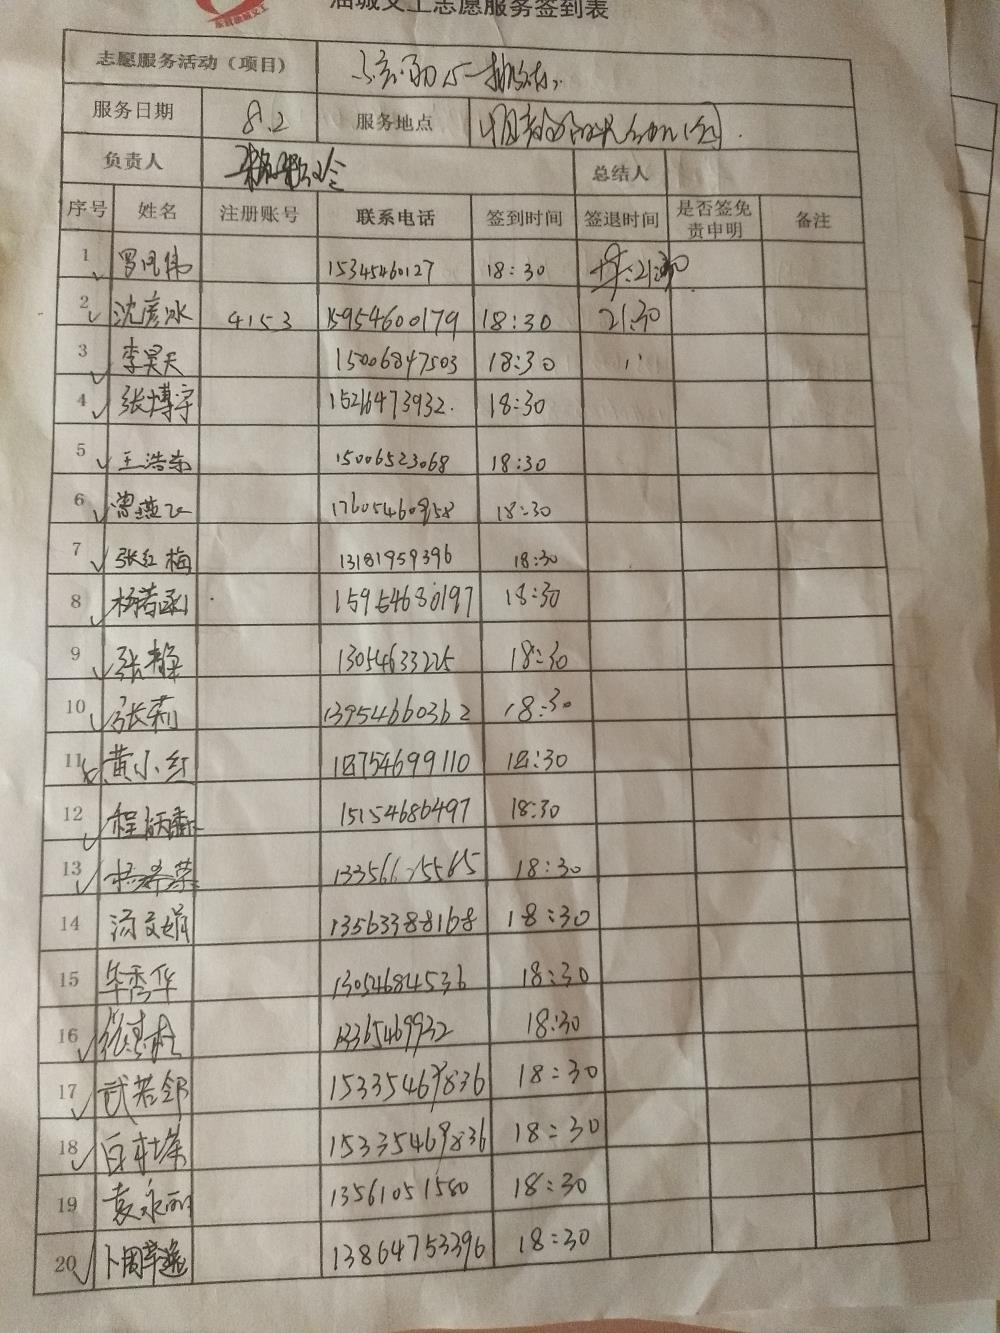 油城义工志愿服务签到表
志愿服务活动（项目）
服务日期 8.2 服务地点
负责人 总结人
序号 姓名 注册账号 联系电话 签到时间 签退时间 是否签免责申明 备注
1 罗凤伟 15345460127 18:30 21:30
2 沈彦冰 4153 15954600179 18:30 21:30
3 李昊天 15006847503 18:30
4 张博宇 15216473932. 18:30
5 王浩东 15006523068 18:30
6 曾燕飞 17605460958 18:30
7 张红梅 13181959396 18:30
8 杨若函 15954680197 18:30
9 张静 13054633225 18:30
10 张莉 13954660362 18:30
11 黄小红 18754699110 18:30
12 程 15154686497 18:30
13 杨 18:30
14 汤文娟 13563388168 18:30
15 毕秀华 13054684536 18:30
16 18:30
17 武若邻 15335469836 18:30
18 白 15335469836 18:30
19 袁永丽 13561051580 18:30
20 卜周莘逸 13864753396 18:30